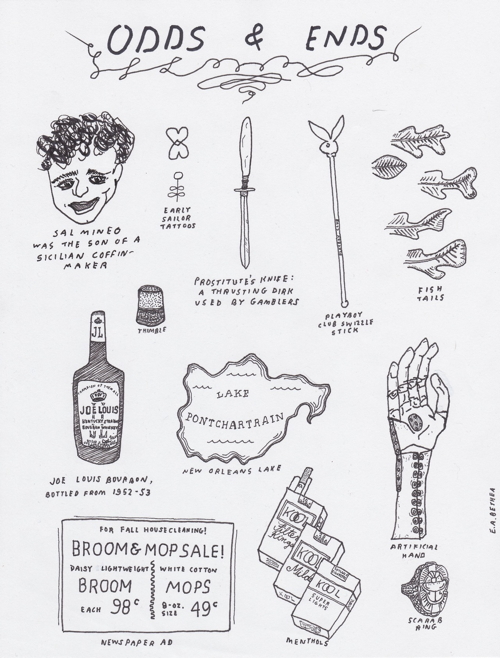 ODDS & ENDS
SAL MINEO
WAS THE SON OF A
SICILIAN COFFIN-
MAKER
EARLY
SAILOR
TATTOOS
PROSTITUTE'S KNIFE:
A THRUSTING DIRK
USED BY GAMBLERS
PLAYBOY
CLUB SWIZZLE
STICK
FISH
TAILS
THIMBLE
JL
JOE LOUIS
KENTUCKY STRAIGHT
BOURBON WHISKEY
JOE LOUIS BOURBON,
BOTTLED FROM 1952-53
LAKE
PONTCHARTRAIN
NEW ORLEANS LAKE
ARTIFICIAL
HAND
E.A. BETHEA
FOR FALL HOUSECLEANING!
BROOM & MOP SALE!
DAISY LIGHTWEIGHT
BROOM
EACH 98¢
WHITE COTTON
MOPS
8-OZ.
SIZE 49¢
NEWSPAPER AD
KOOL
Filter
Kings
KOOL
Milds
KOOL
SUPER
LIGHTS
MENTHOLS
SCARAB
RING